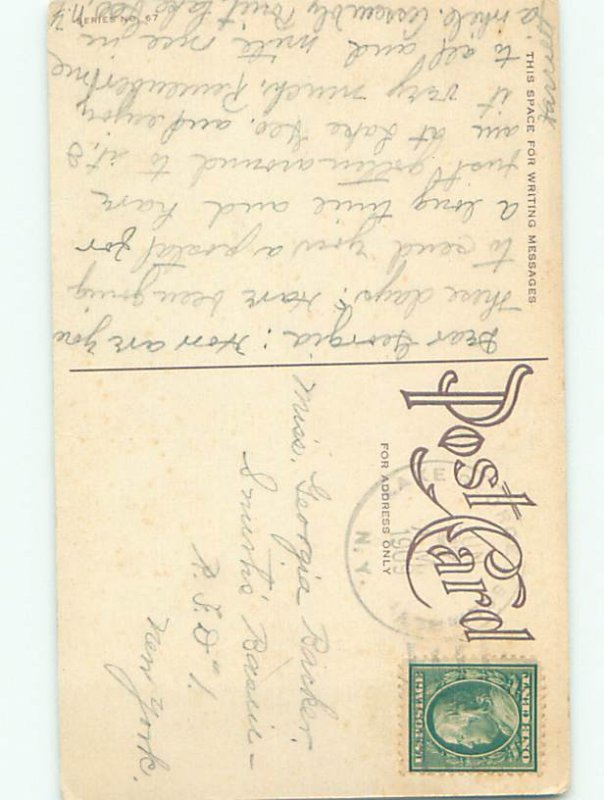 SERIES No. 67
THIS SPACE FOR WRITING MESSAGES
Dear Georgia: How are you
these days? Have been going
to send you a postal for
a long time and have
just gotten around to it. I
am at Lake Geo. and enjoy
it very much. Remember me
to all and write me in
a while. Assembly Point, Lake Geo., N.Y.
Post Card
FOR ADDRESS ONLY
LAKE
1909
N.Y.
U.S. POSTAGE
ONE CENT
Miss. Georgia Barker.
Smith's Basin
R.F.D. 1.
New York.